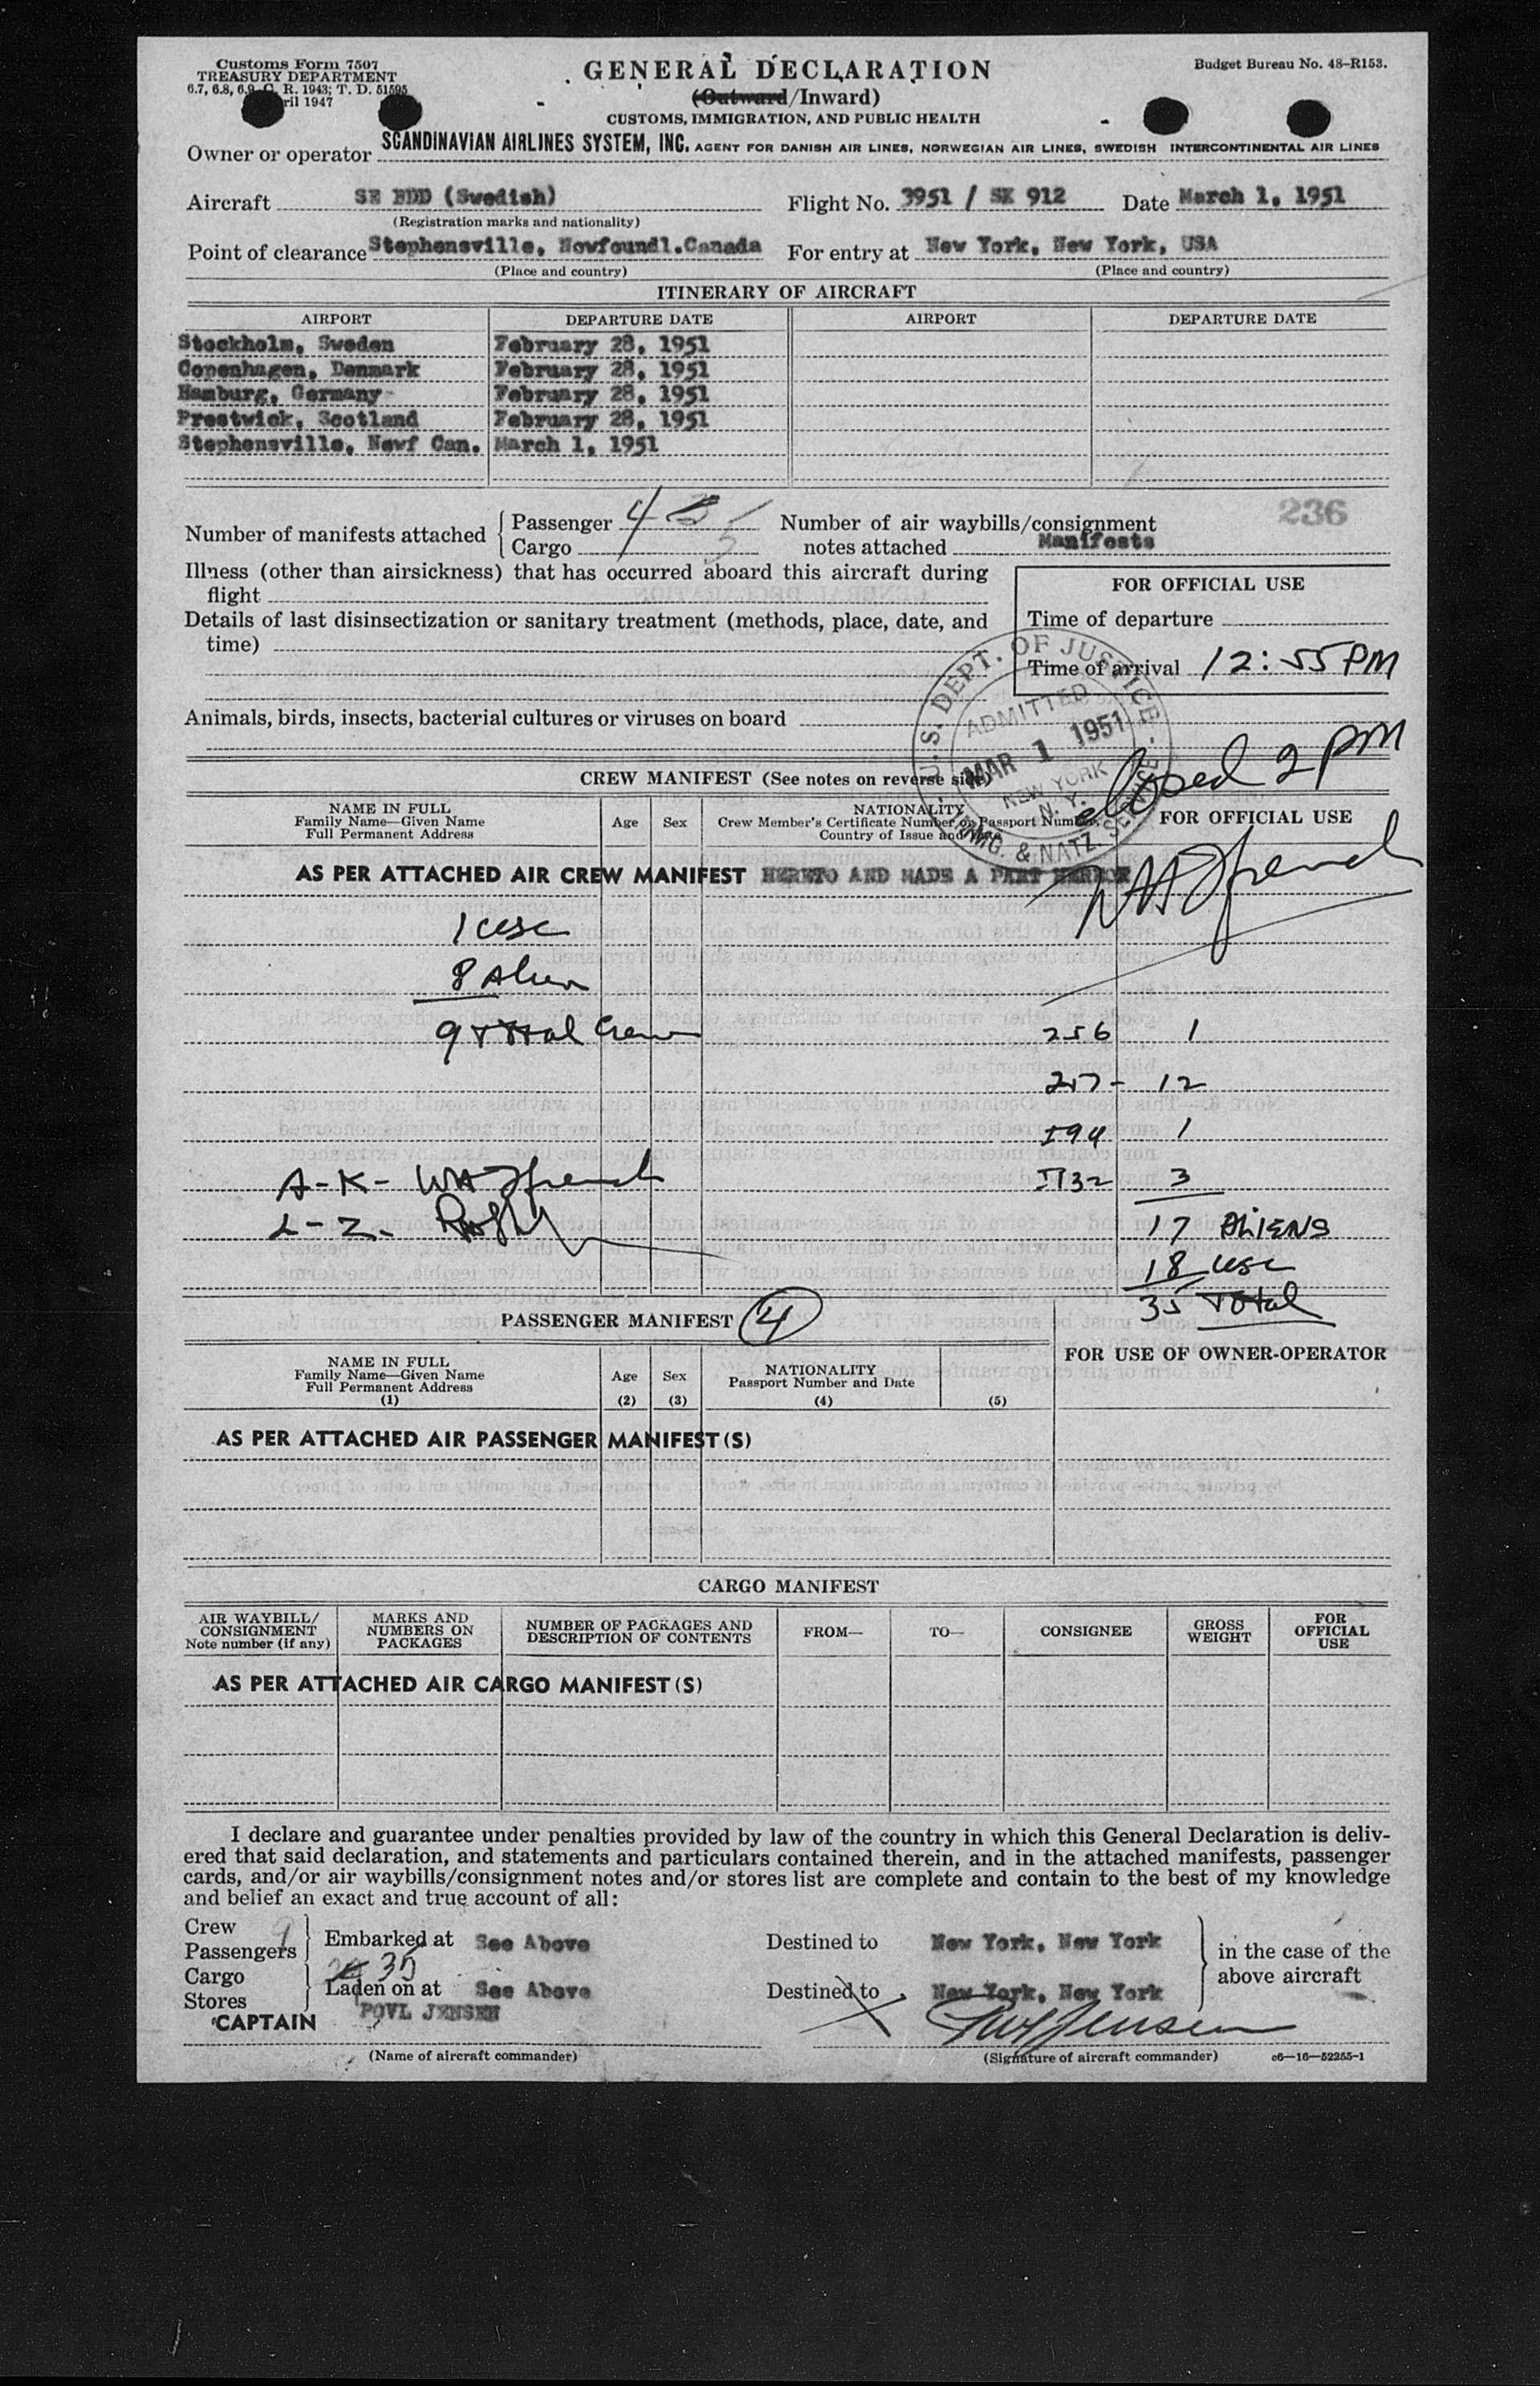 Customs Form 7507
TREASURY DEPARTMENT
6.7, 6.8, 6.9, C. R. 1943; T. D. 51595
ril 1947
GENERAL DECLARATION
(Outward/Inward)
CUSTOMS, IMMIGRATION, AND PUBLIC HEALTH
Budget Bureau No. 48-R153.
Owner or operator SCANDINAVIAN AIRLINES SYSTEM, INC. AGENT FOR DANISH AIR LINES, NORWEGIAN AIR LINES, SWEDISH INTERCONTINENTAL AIR LINES
Aircraft SE BDD (Swedish) Flight No. 3951 / SK 912 Date March 1, 1951
(Registration marks and nationality)
Point of clearance Stephensville, Nowfoundl.Canada For entry at New York, New York, USA
(Place and country) (Place and country)
ITINERARY OF AIRCRAFT
AIRPORT DEPARTURE DATE AIRPORT DEPARTURE DATE
Stockholm, Sweden February 28, 1951
Copenhagen, Denmark February 28, 1951
Hamburg, Germany February 28, 1951
Prestwick, Scotland February 28, 1951
Stephensville, Newf Can. March 1, 1951
236
Number of manifests attached Passenger 4 3 Number of air waybills/consignment
Cargo 5 notes attached Manifests
Illness (other than airsickness) that has occurred aboard this aircraft during
flight
FOR OFFICIAL USE
Details of last disinsectization or sanitary treatment (methods, place, date, and
time)
Time of departure
Time of arrival 12:55 PM
Animals, birds, insects, bacterial cultures or viruses on board
U.S. DEPT. OF JUSTICE
ADMITTED
MAR 1 1951
NEW YORK
N. Y.
IMMG. & NATZ. SERVICE
closed 2 PM
CREW MANIFEST (See notes on reverse side)
NAME IN FULL
Family Name—Given Name
Full Permanent Address
Age Sex
NATIONALITY
Crew Member's Certificate Number or Passport Number,
Country of Issue and Date
FOR OFFICIAL USE
AS PER ATTACHED AIR CREW MANIFEST HERETO AND MADE A PART HEREOF
WA French
1 USC
8 Alien
9 Total Crew 256 1
257- 12
I94 1
A-K- WA French I132 3
L-Z- 17 ALIENS
18 USC
35 Total
PASSENGER MANIFEST 4
FOR USE OF OWNER-OPERATOR
NAME IN FULL
Family Name—Given Name
Full Permanent Address
(1)
Age
(2)
Sex
(3)
NATIONALITY
Passport Number and Date
(4) (5)
AS PER ATTACHED AIR PASSENGER MANIFEST(S)
CARGO MANIFEST
AIR WAYBILL/
CONSIGNMENT
Note number (if any)
MARKS AND
NUMBERS ON
PACKAGES
NUMBER OF PACKAGES AND
DESCRIPTION OF CONTENTS
FROM— TO— CONSIGNEE
GROSS
WEIGHT
FOR
OFFICIAL
USE
AS PER ATTACHED AIR CARGO MANIFEST(S)
I declare and guarantee under penalties provided by law of the country in which this General Declaration is deliv-
ered that said declaration, and statements and particulars contained therein, and in the attached manifests, passenger
cards, and/or air waybills/consignment notes and/or stores list are complete and contain to the best of my knowledge
and belief an exact and true account of all:
Crew 9
Passengers 35 Embarked at See Above Destined to New York, New York in the case of the
Cargo above aircraft
Stores Laden on at See Above Destined to New York, New York
CAPTAIN POVL JENSEN Povl Jensen
(Name of aircraft commander) (Signature of aircraft commander) c6—16—52255-1